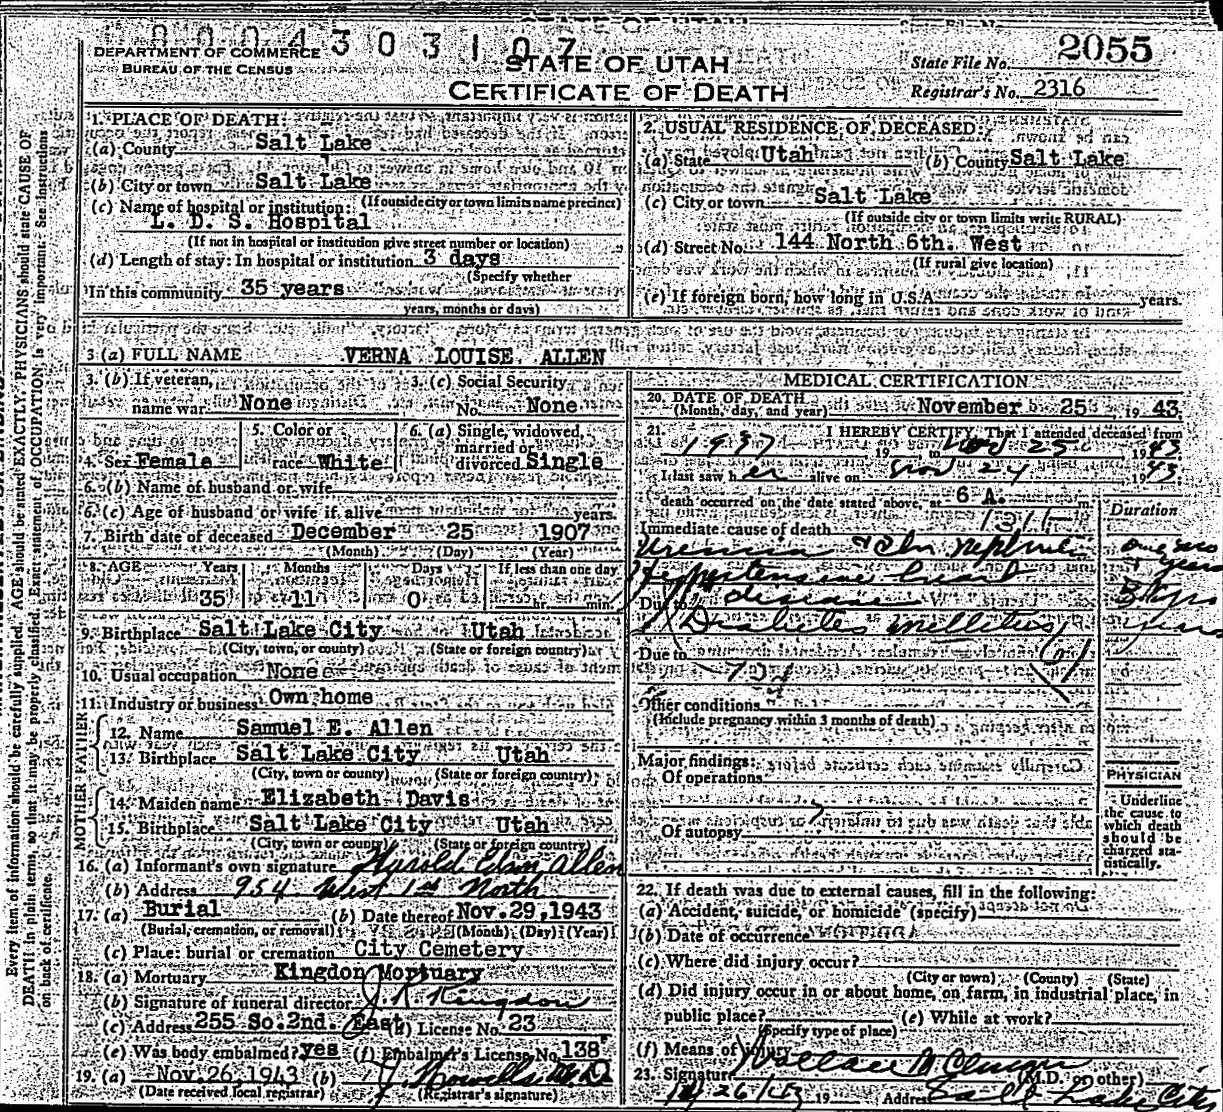 STATE OF UTAH
0 0 0 0 4 3 0 3 1 0 7
DEPARTMENT OF COMMERCE
BUREAU OF THE CENSUS
STATE OF UTAH
CERTIFICATE OF DEATH
State File No. 2055
Registrar's No. 2316
Every item of information should be carefully supplied. AGE should be stated EXACTLY. PHYSICIANS should state CAUSE OF
DEATH in plain terms, so that it may be properly classified. Exact statement of OCCUPATION is very important. See instructions
on back of certificate.
1. PLACE OF DEATH:
(a) County Salt Lake
(b) City or town Salt Lake
(If outside city or town limits name precinct)
(c) Name of hospital or institution:
L. D. S. Hospital
(If not in hospital or institution give street number or location)
(d) Length of stay: In hospital or institution 3 days
(Specify whether
In this community 35 years
years, months or days)
2. USUAL RESIDENCE OF DECEASED:
(a) State Utah (b) County Salt Lake
(c) City or town Salt Lake
(If outside city or town limits write RURAL)
(d) Street No. 144 North 6th. West
(If rural give location)
(e) If foreign born, how long in U.S.A. years.
3 (a) FULL NAME VERNA LOUISE ALLEN
3. (b) If veteran, name war None
3. (c) Social Security No. None
4. Sex Female
5. Color or race White
6. (a) Single, widowed, married or divorced Single
6. (b) Name of husband or wife
6. (c) Age of husband or wife if alive years.
7. Birth date of deceased December 25 1907
(Month) (Day) (Year)
8. AGE Years Months Days If less than one day
35 11 0 hr. min.
9. Birthplace Salt Lake City Utah
(City, town, or county) (State or foreign country)
10. Usual occupation None
11. Industry or business Own home
FATHER
12. Name Samuel E. Allen
13. Birthplace Salt Lake City Utah
(City, town or county) (State or foreign country)
MOTHER
14. Maiden name Elizabeth Davis
15. Birthplace Salt Lake City Utah
(City, town or county) (State or foreign country)
16. (a) Informant's own signature Harold Allen
(b) Address 954 West 1st North
17. (a) Burial (b) Date thereof Nov. 29, 1943
(Burial, cremation, or removal) (Month) (Day) (Year)
(c) Place: burial or cremation City Cemetery
18. (a) Mortuary Kingdon Mortuary
(b) Signature of funeral director J. R. Kingdon
(c) Address 255 So. 2nd. East (d) License No. 23
(e) Was body embalmed? yes (f) Embalmer's License No. 138
19. (a) Nov. 26, 1943 (b) J. Howells M.D
(Date received local registrar) (Registrar's signature)
MEDICAL CERTIFICATION
20. DATE OF DEATH
(Month, day, and year) November 25 1943.
21. I HEREBY CERTIFY, That I attended deceased from
1937 19 to Nov 25 1943.
I last saw her alive on Nov 24 1943.
death occurred on the date stated above, at 6 A. m.
Duration
Immediate cause of death
Uremia
Hypertensive heart
Due to disease
Diabetes mellitus
Due to
Other conditions
(Include pregnancy within 3 months of death)
Major findings:
Of operations
Of autopsy
PHYSICIAN
Underline
the cause to
which death
should be
charged sta-
tistically.
22. If death was due to external causes, fill in the following:
(a) Accident, suicide, or homicide (specify)
(b) Date of occurrence
(c) Where did injury occur?
(City or town) (County) (State)
(d) Did injury occur in or about home, on farm, in industrial place, in
public place? (e) While at work?
(Specify type of place)
(f) Means of
23. Signature Wallace
(M.D. or other)
11/26/43 19 Address Salt Lake City